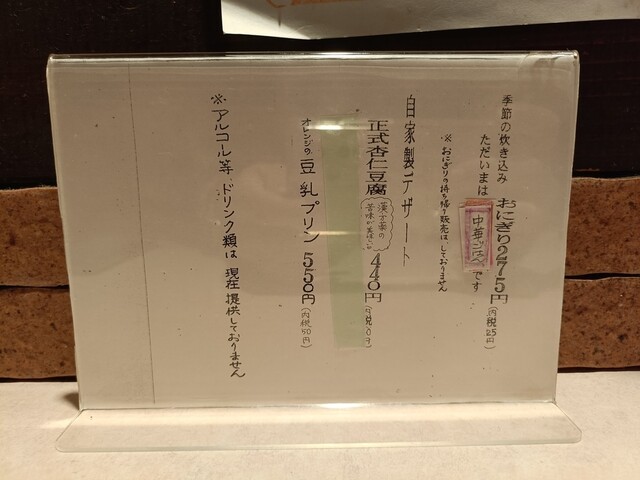 季節の炊き込み おにぎり275円(内税25円)
ただいまは 中華ごはん です
※おにぎりの持ち帰り販売はしておりません
自家製デザート
正式杏仁豆腐 漢方薬の 苦味が 440円
オレンジの豆乳プリン 550円(内税50円)
※アルコール等、ドリンク類は現在提供しておりません